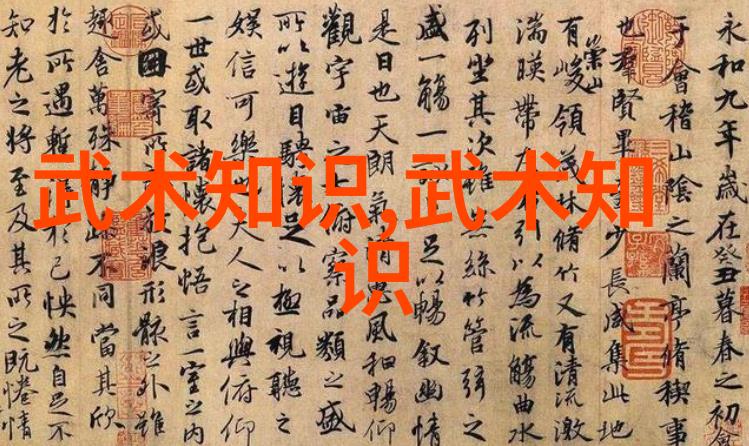 武术知识,武术知
识
永和九年歲在癸丑暮春之初會
于會稽山陰之蘭亭脩稧事
也羣賢畢至少長咸集此地
有崇山峻領茂林脩竹又有清流激
湍暎帶左右引以為流觴曲水
列坐其次雖無絲竹管弦之
盛一觴一詠足以暢叙幽情
是日也天朗氣清惠風和暢仰
觀宇宙之大俯察品類之盛
所以遊目騁懷足以極視聽之
娛信可樂也夫人之相與俯仰
一世或取諸懷抱悟言一室之內
或因寄所託放浪形骸之外雖
趣舍萬殊靜躁不同當其欣
於所遇暫得於己怏然自足不
知老之將至及其所之既惓情